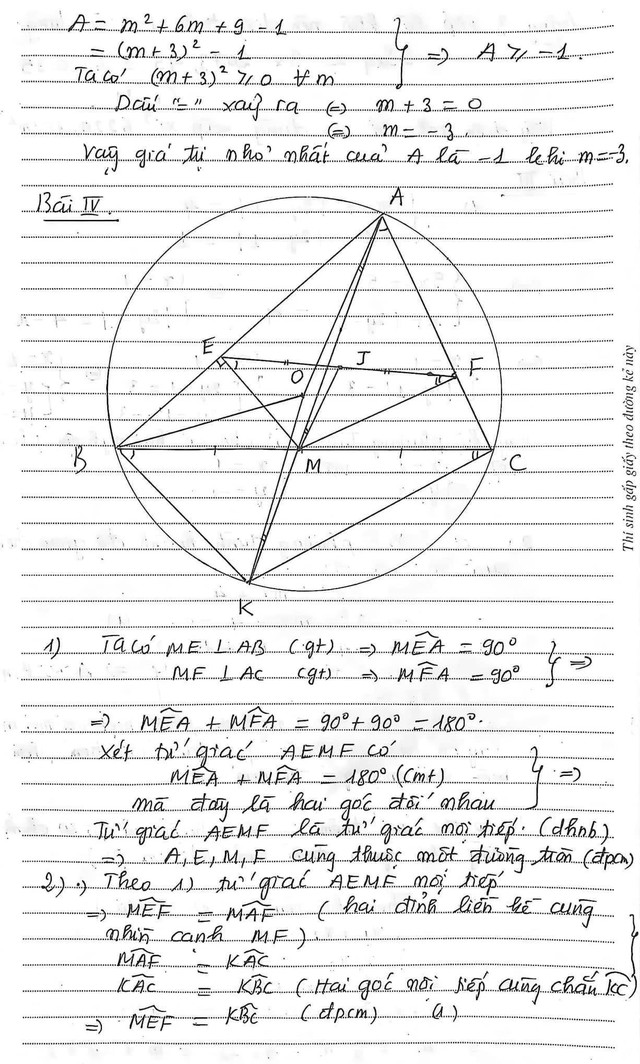 A = m² + 6m + 9 - 1
= (m+3)² - 1
Ta có (m+3)² ≥ 0 ∀m } => A ≥ -1.
Dấu "=" xảy ra (=) m + 3 = 0
(=) m = -3.
Vậy giá trị nhỏ nhất của A là -1 khi m=-3.
Bài IV.
A
E
J
F
O
B
M
C
K
Thí sinh gấp giấy theo đường kẻ này
1) Ta có ME ⊥ AB (gt) => MÊA = 90°
MF ⊥ AC (gt) => MF̂A = 90° } =>
=> MÊA + MF̂A = 90° + 90° = 180°.
Xét tứ giác AEMF có
MÊA + MF̂A = 180° (cmt)
mà đây là hai góc đối nhau } =>
Tứ giác AEMF là tứ giác nội tiếp. (dhnb).
=> A, E, M, F cùng thuộc một đường tròn (đpcm)
2) .) Theo 1) tứ giác AEMF nội tiếp
=> MÊF = MÂF (hai đỉnh liền kề cùng
nhìn cạnh MF).
MÂF = KÂC
KÂC = KB̂C (Hai góc nội tiếp cùng chắn KC)
=> MÊF = KB̂C (đpcm) (1)